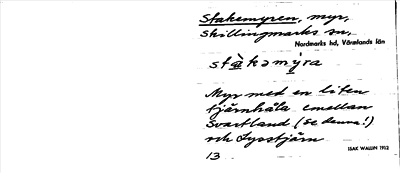 Stakemyren, myr,
Skillingmarks sn,
Nordmarks hd, Värmlands län
Myr med en liten
tjärnhåla emellan
Svartland (se denna!)
och Lysstjärn
13
ISAK WALLIN 1932